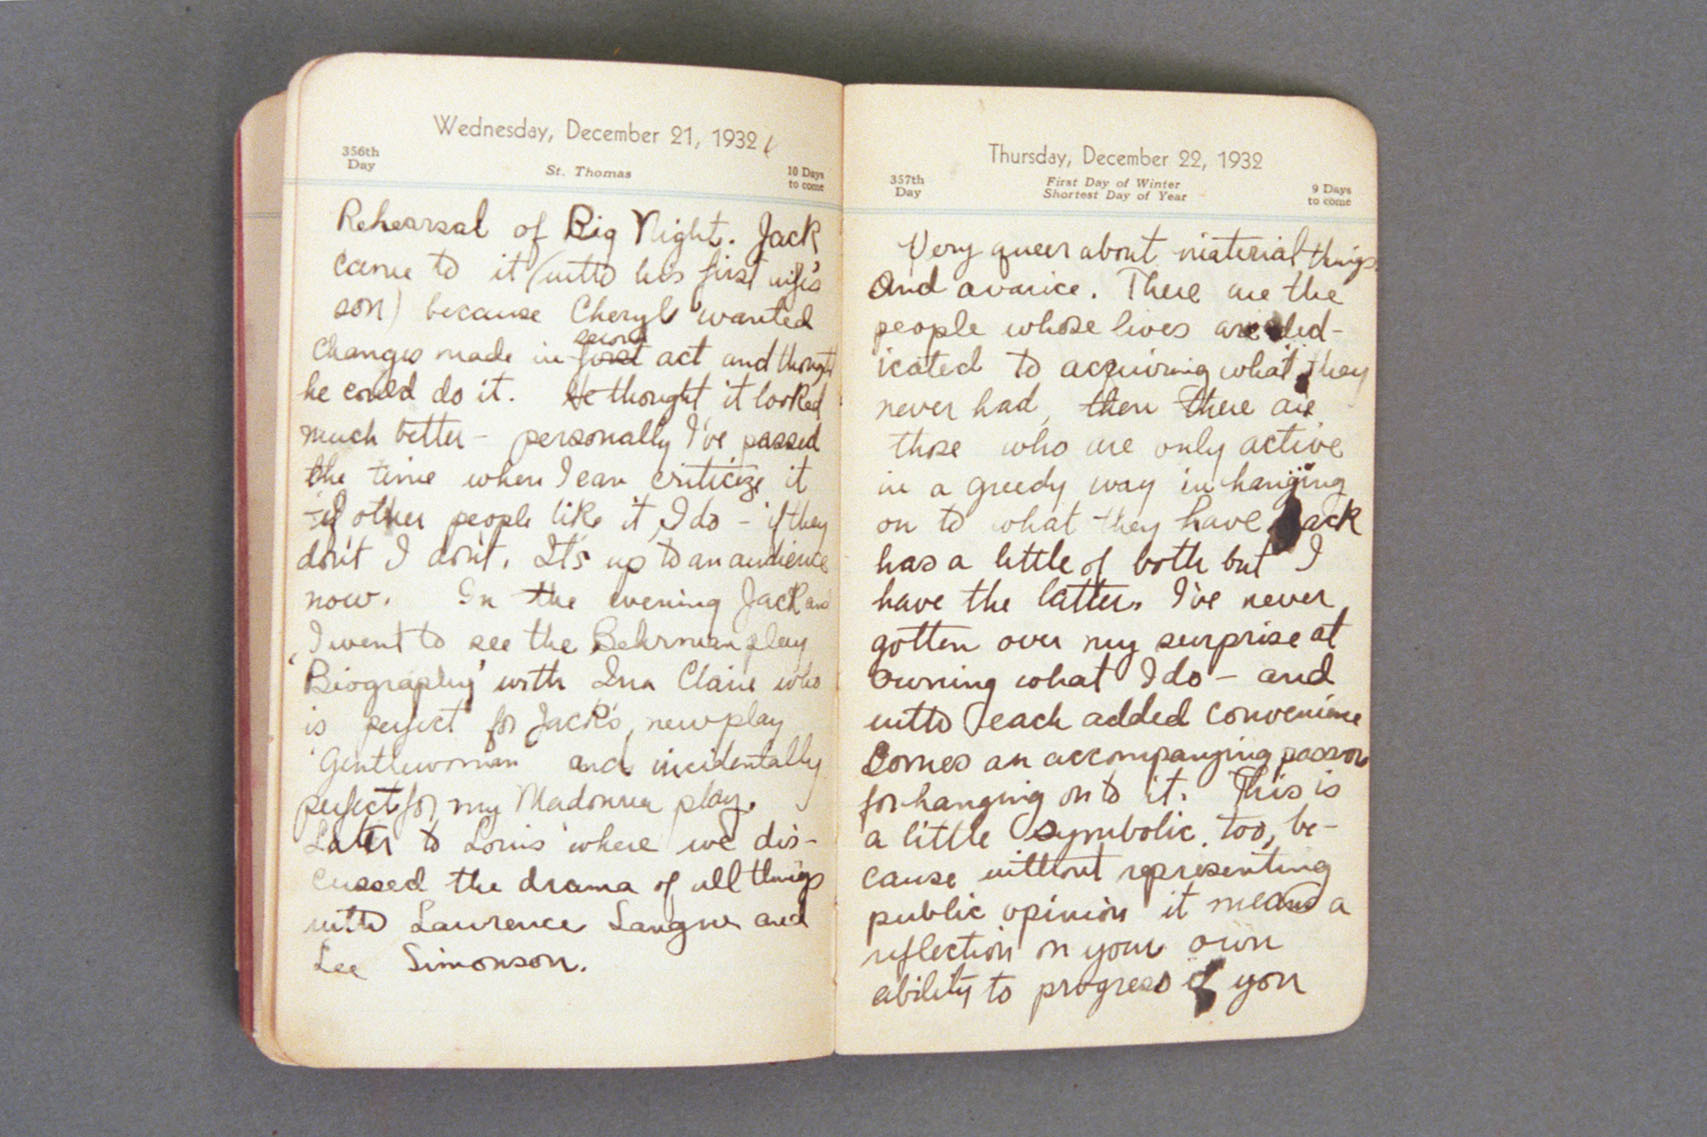 Wednesday, December 21, 1932
356th
Day
St. Thomas
10 Days
to come
Rehearsal of Big Night. Jack
came to it (with his first wife's
son) because Cheryl wanted
second
changes made in first act and thought
he could do it. He thought it looked
much better – personally I've passed
the time when I can criticize it
– if other people like it, I do – if they
don't I don't. It's up to an audience
now. In the evening Jack and
I went to see the Behrman play
'Biography' with Ina Claire who
is perfect for Jack's new play
'Gentlewoman' and incidentally
perfect for my Madonna play.
Later to Louis' where we dis-
cussed the drama of all things
with Lawrence Langner and
Lee Simonson.
Thursday, December 22, 1932
357th
Day
First Day of Winter
Shortest Day of Year
9 Days
to come
Very queer about material things
and avarice. There are the
people whose lives are ded-
icated to acquiring what they
never had, then there are
those who are only active
in a greedy way in hanging
on to what they have Jack
has a little of both but I
have the latter. I've never
gotten over my surprise at
owning what I do – and
with each added convenience
comes an accompanying passion
for hanging on to it. This is
a little symbolic, too, be-
cause without representing
public opinion it means a
reflection on your own
ability to progress if you